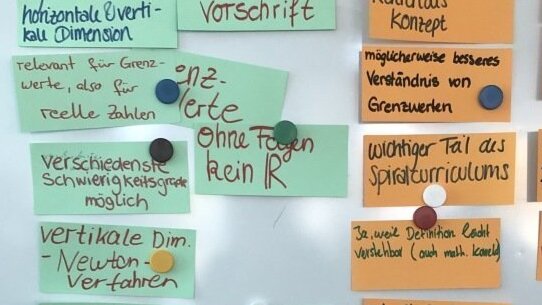 horizontale & verti-
kale Dimension
Vorschrift
relevant für Grenz-
werte, also für
reelle Zahlen
enz-
erte
Ohne Folgen
kein ℝ
verschiedenste
Schwierigkeitsgrade
möglich
vertikale Dim.
- Newton-
Verfahren
Konzept
möglicherweise besseres
Verständnis von
Grenzwerten
wichtiger Teil des
Spiralcurriculums
Ja, weil Definition leicht
verstehbar (auch math. korrekt)